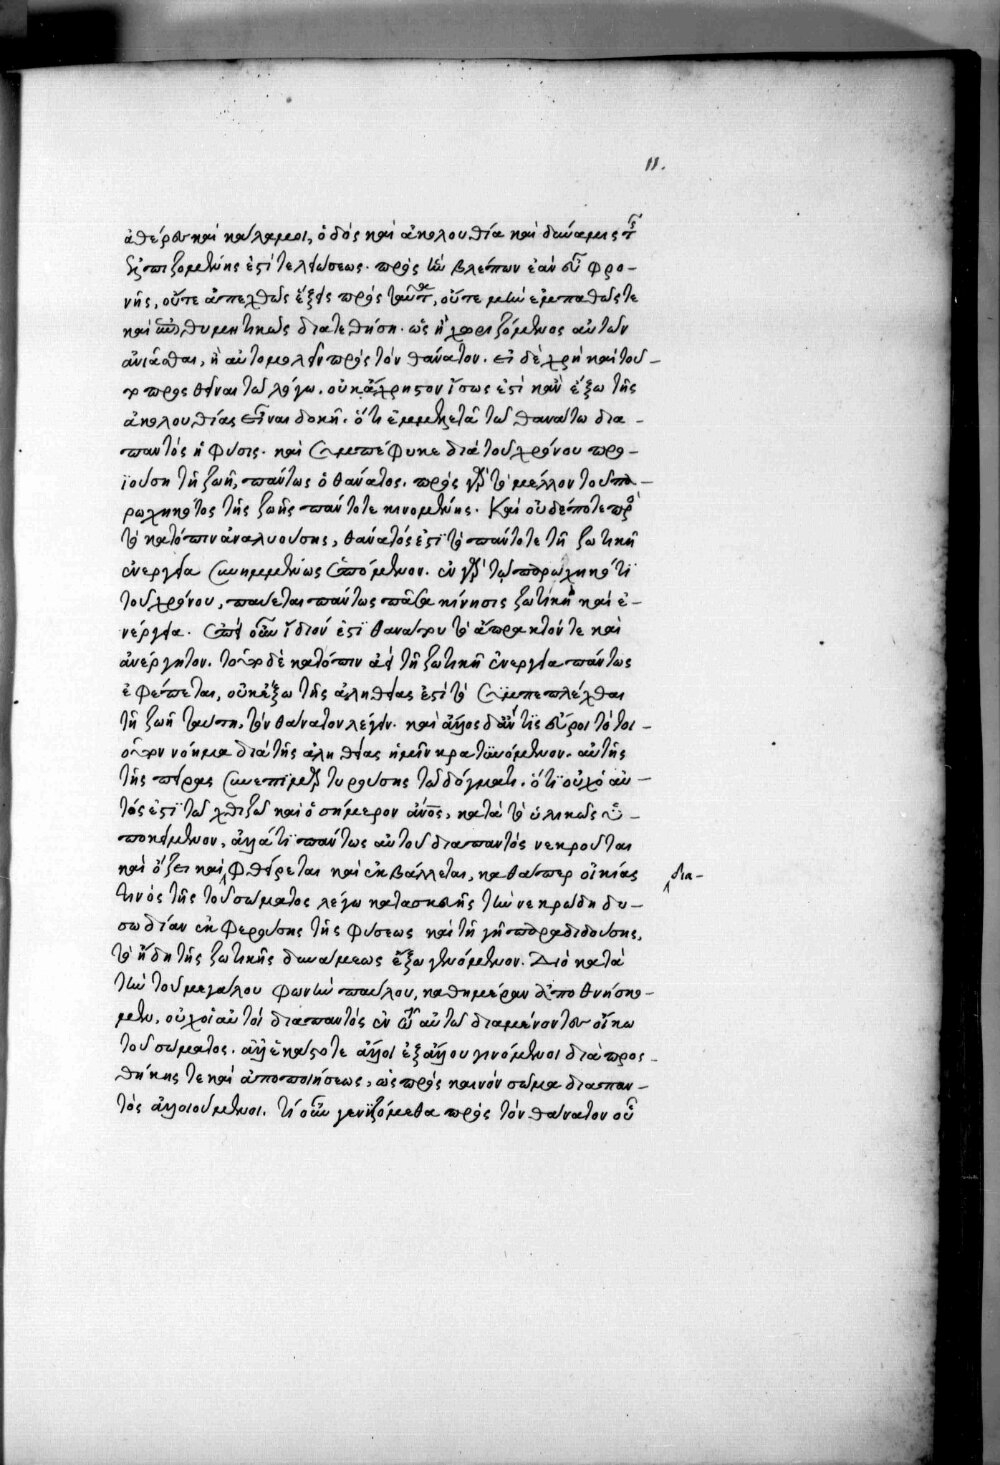 11.
ἀθέρων καὶ καλάμοι, ὁδὸς καὶ ἀκολουθία καὶ δύναμις τῆς
ἐλπιζομένης ἐστὶ τελειώσεως. πρὸς ἣν βλέπων ἐὰν εὖ φρο-
νῇς, οὔτε ἀπεχθῶς ἕξεις πρὸς ταῦτα, οὔτε μὴν ἐμπαθῶς τε
καὶ ἐπιθυμητικῶς διατεθήσῃ. ὡς ἢ χωριζόμενος αὐτῶν
ἀνιᾶσθαι, ἢ αὐτομολεῖν πρὸς τὸν θάνατον. εἰ δὲ χρὴ καὶ τοῦ-
το προσθεῖναι τῷ λόγῳ. οὐκ ἄχρηστον ἴσως ἐστὶ κἂν ἔξω τῆς
ἀκολουθίας εἶναι δοκῇ. ὅτι ἐμμελετᾷ τῷ θανάτῳ δια-
παντὸς ἡ φύσις. καὶ συμπέφυκε διὰ τοῦ χρόνου προ-
ϊούσῃ τῇ ζωῇ, πάντως ὁ θάνατος. πρὸς γὰρ τὸ μέλλον τοῦ πα-
ρῳχηκότος τῆς ζωῆς πάντοτε κινουμένης. Καὶ οὐδέποτε πρὸς
τὸ κατόπιν ἀναλυούσης, θάνατός ἐστι τὸ πάντοτε τῇ ζωτικῇ
ἐνεργείᾳ συνημμένως ἑπόμενον. ἐν γὰρ τῷ παρῳχηκότι
τοῦ χρόνου, παύεται πάντως πᾶσα κίνησις ζωτικὴ καὶ ἐ-
νέργεια. ἐπεὶ οὖν ἴδιόν ἐστι θανάτου τὸ ἄπρακτόν τε καὶ
ἀνέργητον. τοῦτο δὲ κατόπιν ἀεὶ τῇ ζωτικῇ ἐνεργείᾳ πάντως
ἐφέπεται, οὐκ ἔξω τῆς ἀληθείας ἐστὶ τὸ συμπεπλέχθαι
τῇ ζωῇ ταύτῃ, τὸν θάνατον λέγειν. καὶ ἄλλως δ' ἄν τις εὕροι τὸ τοι-
οῦτον νόημα διὰ τῆς ἀληθείας ἡμῖν κρατυνόμενον. αὐτῆς
τῆς πείρας συνεπιμαρτυρούσης τῷ δόγματι. ὅτι οὐχ ὁ αὐ-
τός ἐστι τῷ χθιζῷ καὶ ὁ σήμερον ἄνθρωπος, κατὰ τὸ ὑλικῶς ὑ-
ποκείμενον, ἀλλά τι πάντως αὐτοῦ διαπαντὸς νεκροῦται
καὶ ὄζει καὶ φθείρεται καὶ ἐκβάλλεται, καθάπερ οἰκίας δια-
τινὸς τῆς τοῦ σώματος λέγω κατασκευῆς τὴν νεκρώδη δυ-
σωδίαν ἐκφερούσης τῆς φύσεως καὶ τῇ γῇ παραδιδούσης,
τὸ ἤδη τῆς ζωτικῆς δυνάμεως ἔξω γενόμενον. Διὸ κατὰ
τὴν τοῦ μεγάλου φωνὴν παύλου, καθημέραν ἀποθνήσκο-
μεν, οὐχ οἱ αὐτοὶ διαπαντὸς ἐν τῷ αὐτῷ διαμένοντες οἴκῳ
τοῦ σώματος. ἀλλ' ἑκάστοτε ἄλλοι ἐξ ἄλλου γινόμενοι διὰ προς-
θήκης τε καὶ ἀποποιήσεως, ὡς πρὸς καινὸν σῶμα διαπαν-
τὸς ἀλλοιούμενοι. τί οὖν ξενιζόμεθα πρὸς τὸν θάνατον οὗ